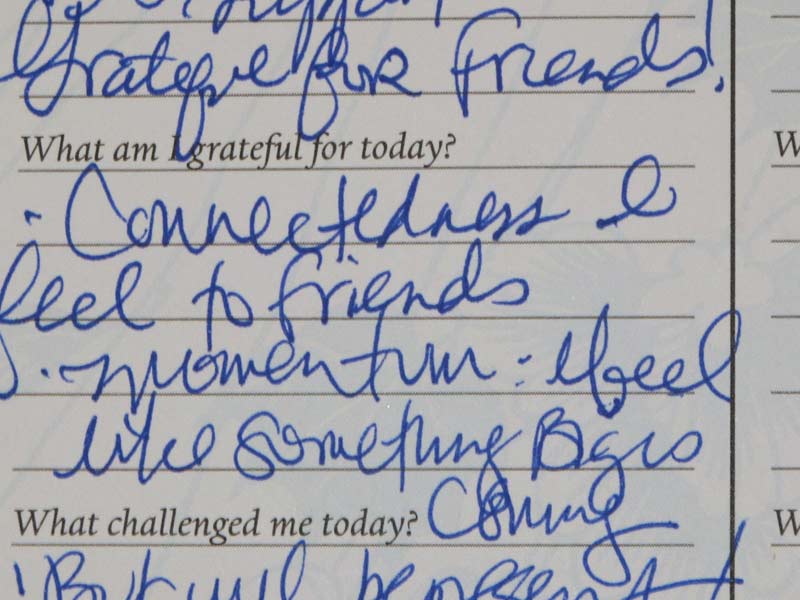 Grateful for friends!
What am I grateful for today?
· Connectedness I
feel to friends
· momentum: I feel
like something Big is
What challenged me today? Coming